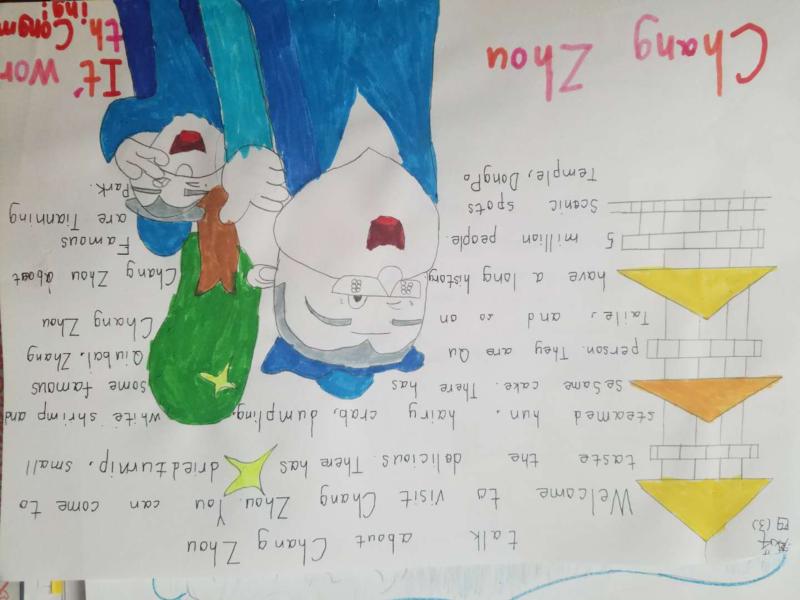 四(3)
talk about Chang Zhou
Welcome to visit Chang Zhou. You can come to
taste the delicious. There has driedturnip, small
steamed hun, hairy crab, dumpling, white shrimp and
SeSame cake. There has some famous
person. They are Qu Qiubai, Zhang
Taile, and so on Chang Zhou
have a long history. Chang Zhou about
5 million people. Famous
Scenic spots are Tianning
Temple, DongPo Park.
Chang Zhou It' Wor
th. Conm
ing!